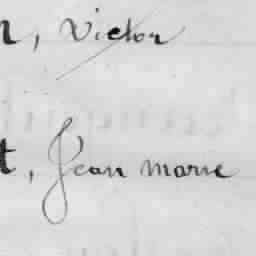 n, Victor
t, Jean marie